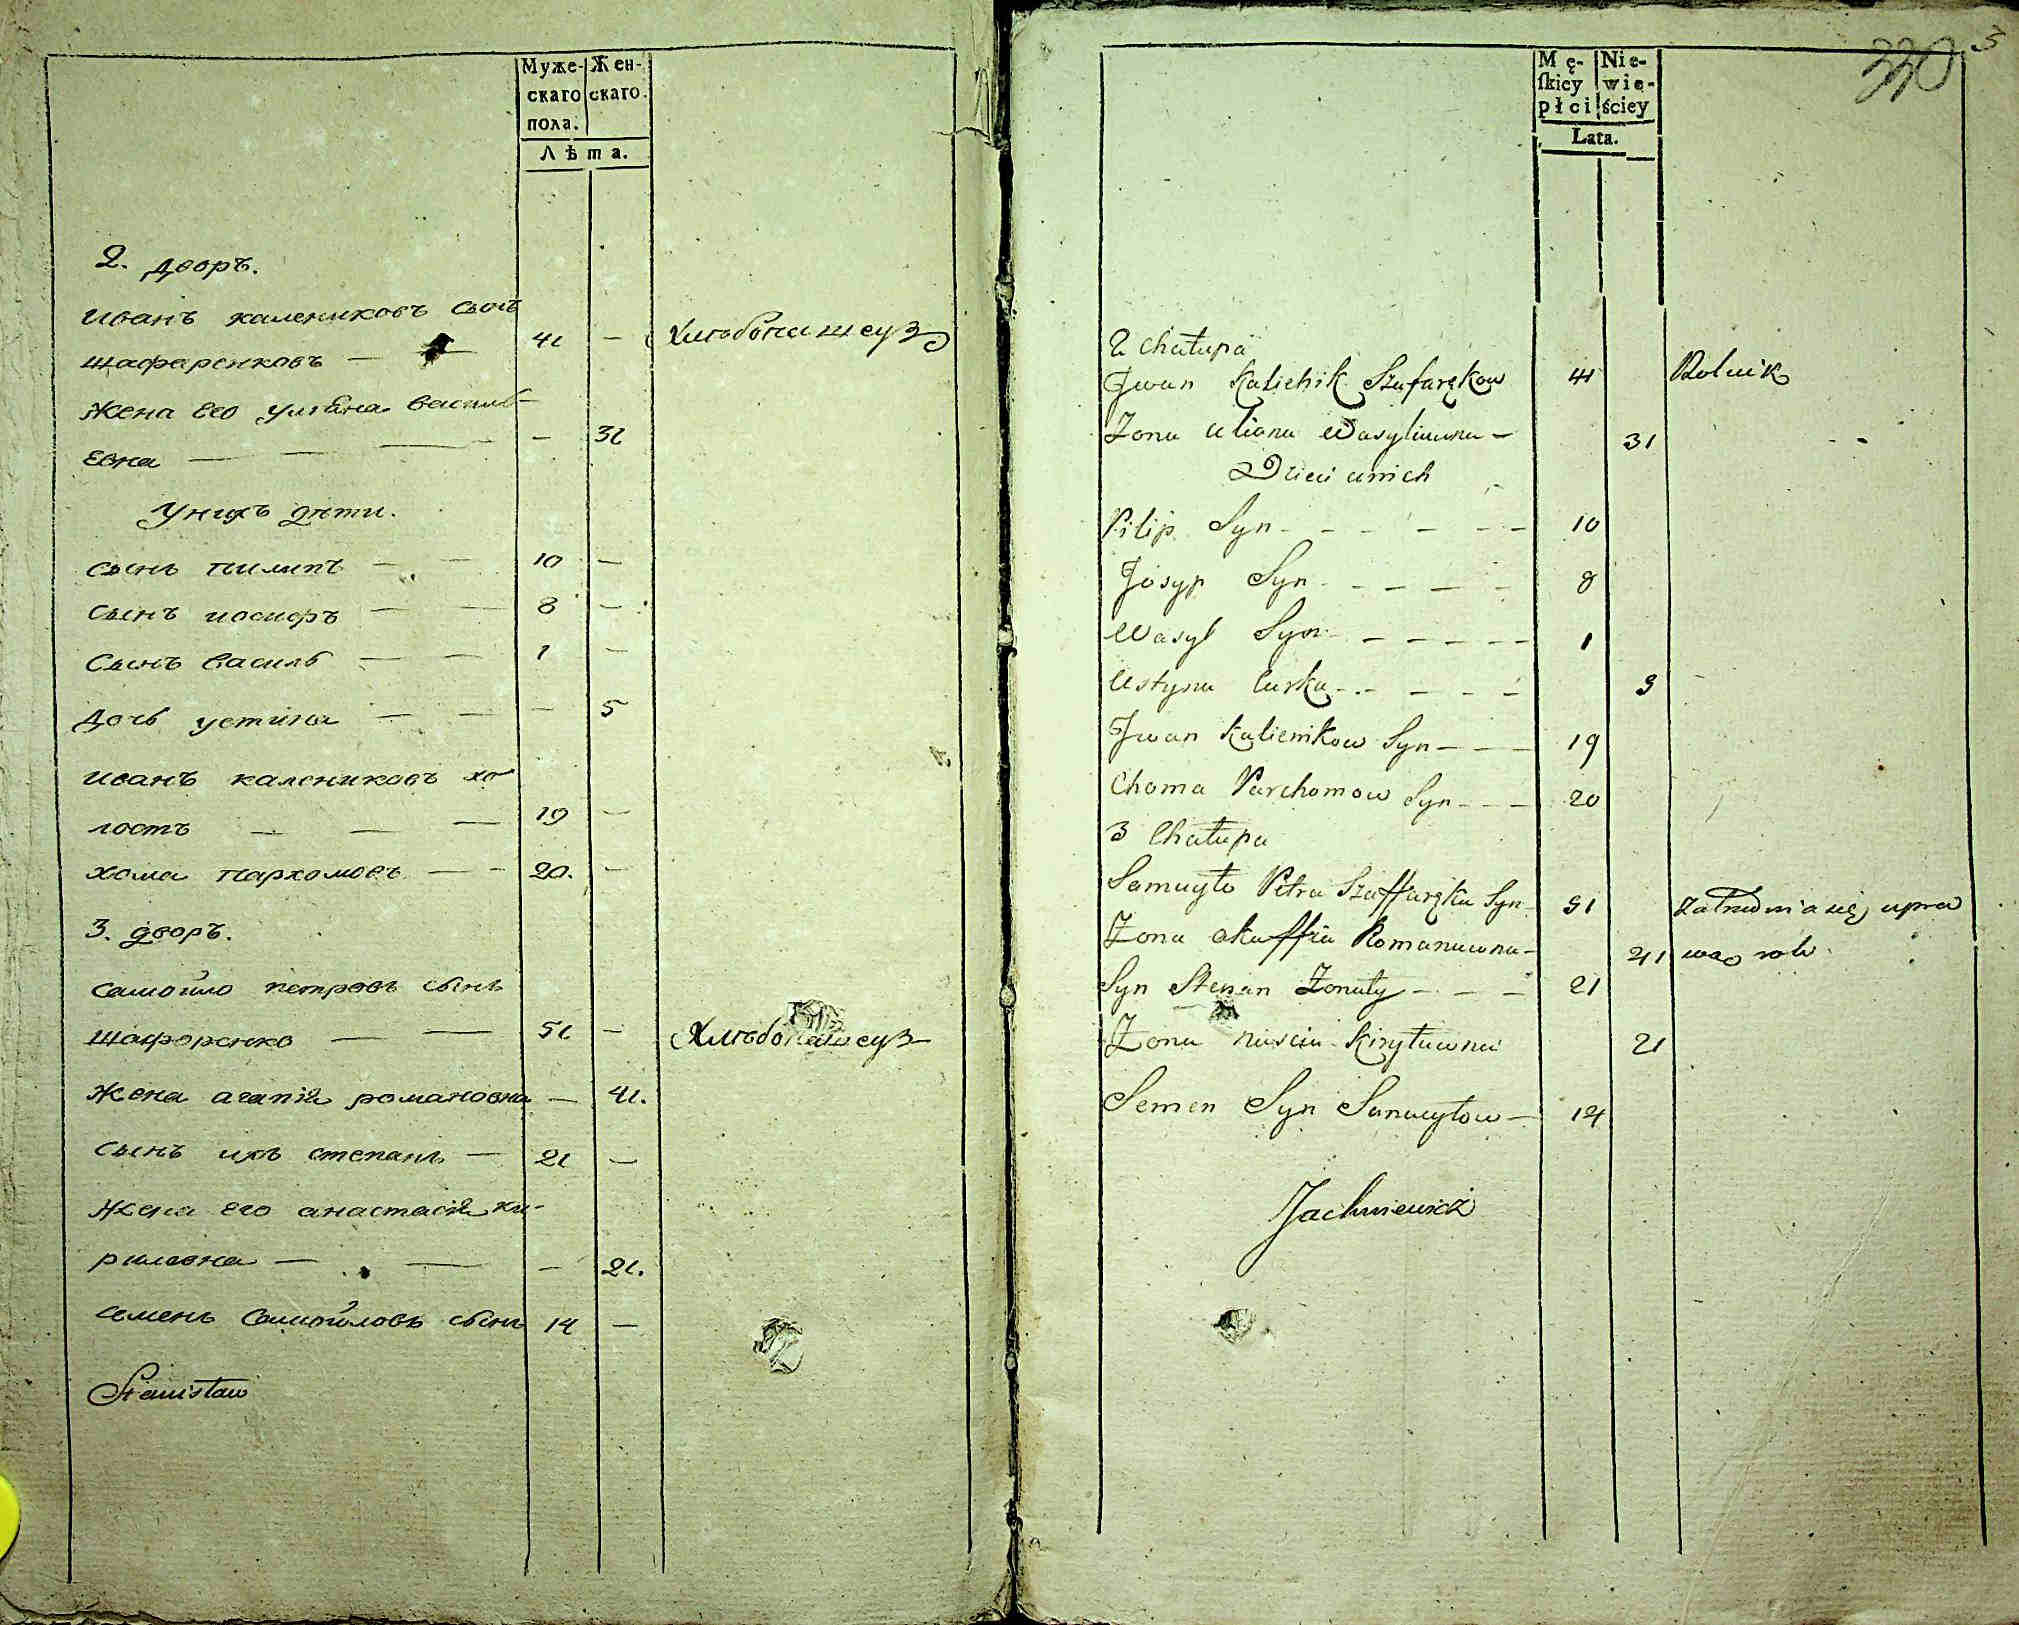 Муже- Жен-
скаго скаго.
пола.
Лѣта.
2. дворъ.
Иванъ калениковъ сынъ
шафаренковъ — 41 — Хлѣбопашецъ
Жена его ульяна василь-
евна — — 31
У нихъ дѣти.
сынъ пилипъ — — 10 —
сынъ иосифъ — — 8 —
Сынъ василь — — 1 —
Дочь устина — — — 5
иванъ калениковъ хо
лостъ — — — 19 —
хома пархомовъ — — 20. —
3. дворъ.
самойло петровъ сынъ
шафоренко — — 51 — Хлѣбопашецъ
Жена агапія романовна — 41.
сынъ ихъ степанъ — 21 —
Жена его анастасія ки-
риловна — — — 21.
семенъ самойловъ сынъ 14 —
Stanisław
330 5
Mę- Nie-
ſkiey wie-
płci ściey
Lata.
2 Chałupa
Jwan Kalienik Szafaręków 41 Rolnik
Zona Uliana Wasyliuwna — 31
Dzieci u nich
Pilip Syn - - - - - 10
Josyp Syn - - - - 8
Wasyl Syn - - - - - 1
Ustyna Curka - - - - - 5
Jwan Kalienikow Syn - - - 19
Choma Parchomow Syn - - - 20
3 Chałupa
Samuyło Petra Szaffaręka Syn 51 Zatrudnia się upra
Zona Akaffia Romanuwna - 41 wao roli
Syn Stepan Zonaty - - - 21
Zona Nascia Kiryłuwna 21
Semen Syn Samuyłow - 14
Jachniewicz